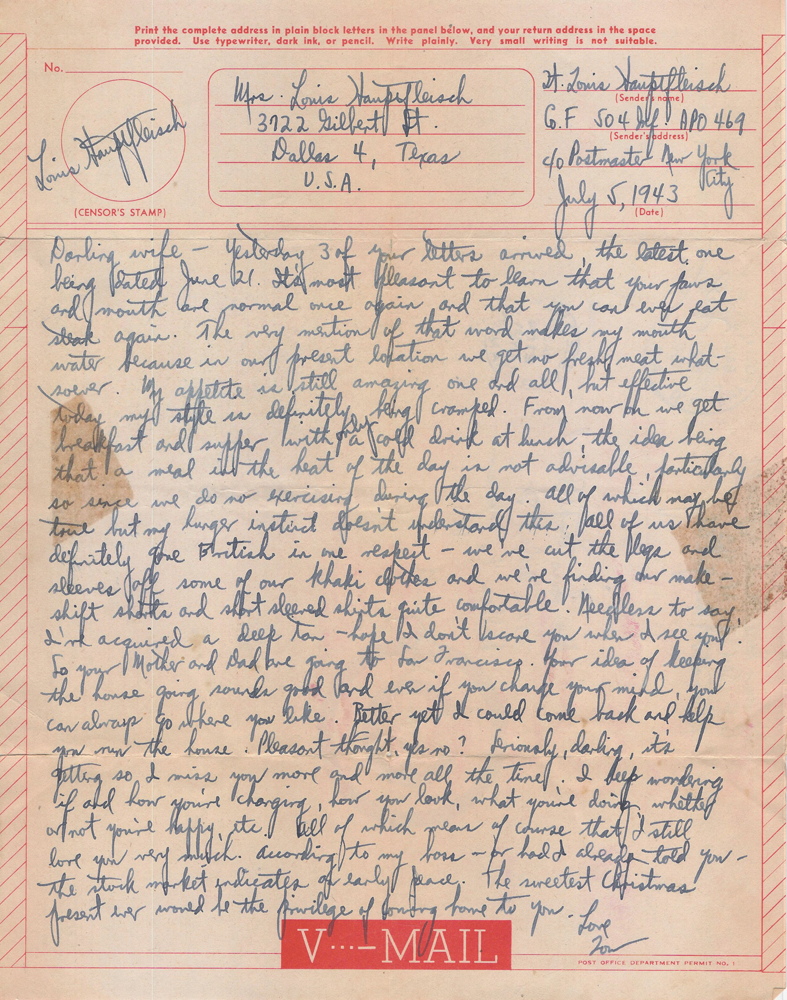 Print the complete address in plain block letters in the panel below, and your return address in the space
provided. Use typewriter, dark ink, or pencil. Write plainly. Very small writing is not suitable.
No.
Louis Hauptfleisch
(CENSOR'S STAMP)
Mrs. Louis Hauptfleisch
3722 Gilbert St.
Dallas 4, Texas
U.S.A.
Lt. Louis Hauptfleisch
(Sender's name)
G.F 504 Inf. APO 469
(Sender's address)
c/o Postmaster New York
City
July 5, 1943
(Date)
Darling wife – Yesterday 3 of your letters arrived, the latest one
being dated June 21. It's most pleasant to learn that your jaws
and mouth are normal once again and that you can even eat
steak again. The very mention of that word makes my mouth
water because in our present location we get no fresh meat what-
soever. My appetite is still amazing one and all, but effective
today my style is definitely being cramped. From now on we get
breakfast and supper with only a cold drink at lunch, the idea being
that a meal in the heat of the day is not advisable, particularly
so since we do no exercising during the day. All of which may be
true but my hunger instinct doesn't understand this. All of us have
definitely gone British in one respect – we've cut the legs and
sleeves off some of our khaki clothes and we're finding our make-
shift shorts and short sleeved shirts quite comfortable. Needless to say,
I've acquired a deep tan – hope I don't scare you when I see you!
So your Mother and Dad are going to San Francisco. Your idea of keeping
the house going sounds good and even if you change your mind, you
can always go where you like. Better yet I could come back and help
you run the house. Pleasant thought, yes no? Seriously, darling, it's
getting so I miss you more and more all the time. I keep wondering
if and how you're changing, how you look, what you're doing, whether
or not you're happy, etc. All of which means of course that I still
love you very much. According to my boss – or had I already told you –
the stock market indicates an early peace. The sweetest Christmas
present ever would be the privilege of coming home to you.
Love
Lou
V···–MAIL
POST OFFICE DEPARTMENT PERMIT NO. 1